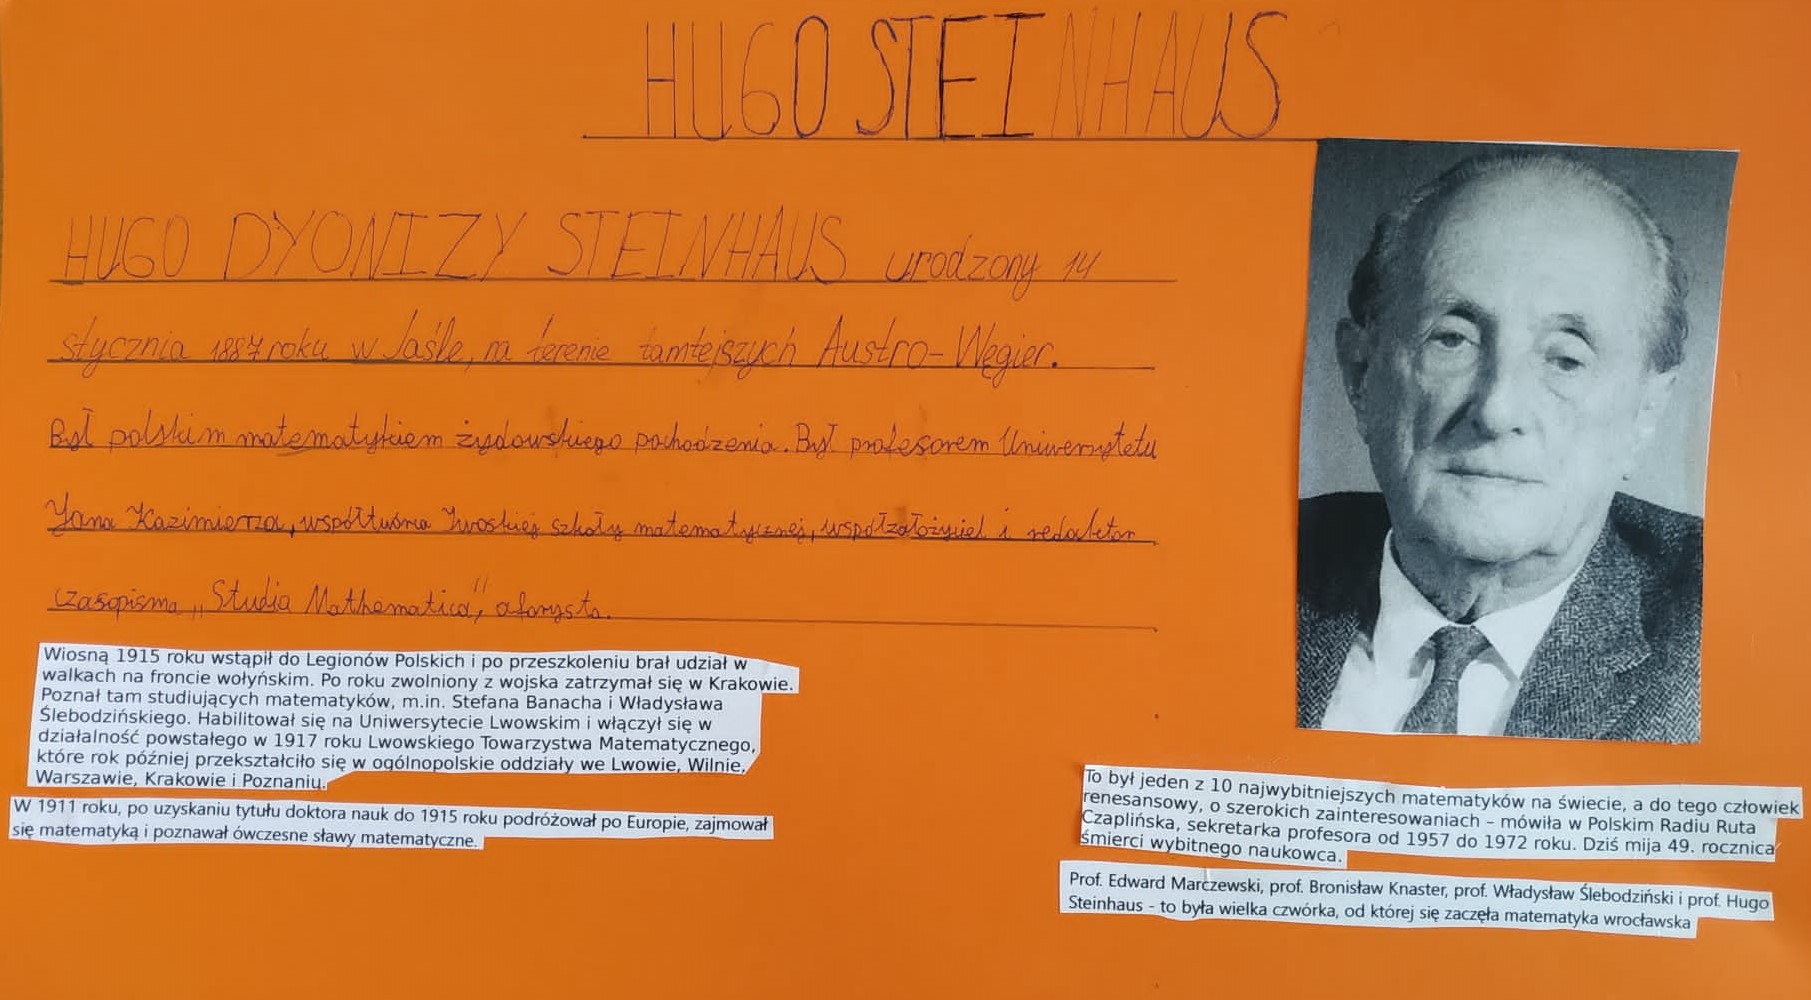 HUGO STEINHAUS
HUGO DYONIZY STEINHAUS urodzony 14
stycznia 1887 roku w Jaśle, na terenie tamtejszych Austro-Węgier.
Był polskim matematykiem żydowskiego pochodzenia. Był profesorem Uniwersytetu
Jana Kazimierza, współtwórca lwoskiej szkoły matematycznej, współzałożyciel i redaktor
czasopisma „Studia Mathematica", aforysta.
Wiosną 1915 roku wstąpił do Legionów Polskich i po przeszkoleniu brał udział w
walkach na froncie wołyńskim. Po roku zwolniony z wojska zatrzymał się w Krakowie.
Poznał tam studiujących matematyków, m.in. Stefana Banacha i Władysława
Ślebodzińskiego. Habilitował się na Uniwersytecie Lwowskim i włączył się w
działalność powstałego w 1917 roku Lwowskiego Towarzystwa Matematycznego,
które rok później przekształciło się w ogólnopolskie oddziały we Lwowie, Wilnie,
Warszawie, Krakowie i Poznaniu.
W 1911 roku, po uzyskaniu tytułu doktora nauk do 1915 roku podróżował po Europie, zajmował
się matematyką i poznawał ówczesne sławy matematyczne.
To był jeden z 10 najwybitniejszych matematyków na świecie, a do tego człowiek
renesansowy, o szerokich zainteresowaniach – mówiła w Polskim Radiu Ruta
Czaplińska, sekretarka profesora od 1957 do 1972 roku. Dziś mija 49. rocznica
śmierci wybitnego naukowca.
Prof. Edward Marczewski, prof. Bronisław Knaster, prof. Władysław Ślebodziński i prof. Hugo
Steinhaus - to była wielka czwórka, od której się zaczęła matematyka wrocławska